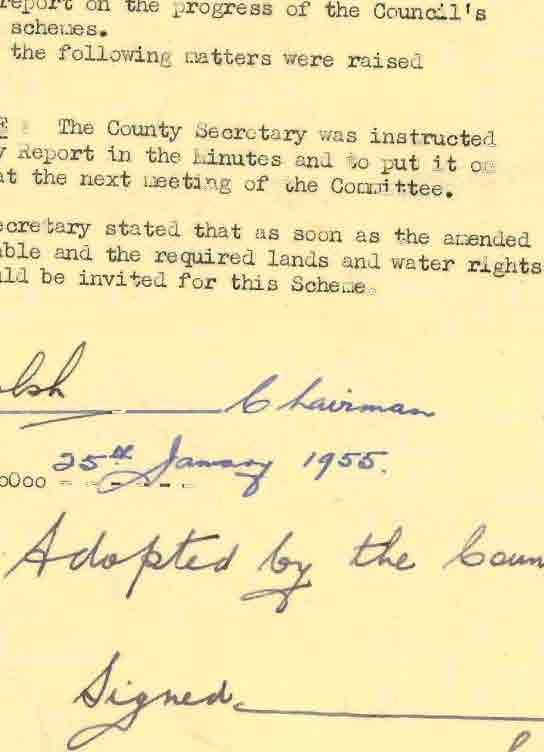 report on the progress of the Council's
schemes.
the following matters were raised
The County Secretary was instructed
Report in the Minutes and to put it on
at the next meeting of the Committee.
ecretary stated that as soon as the amended
able and the required lands and water rights
uld be invited for this Scheme.
lsh Chairman
25th January 1955.
oOoo - - - - - -
Adopted by the Coun
Signed